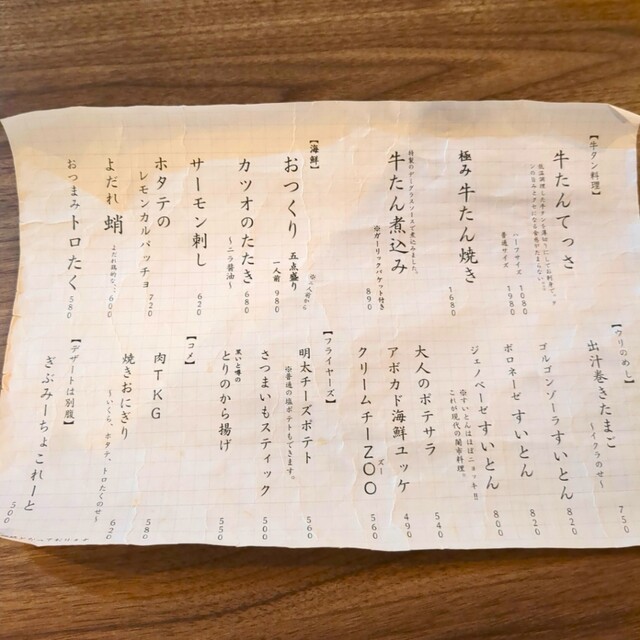 【牛タン料理】
牛たんてっさ
ハーフサイズ 1080
普通サイズ 1980
極み 牛たん焼き
1680
特製のデミグラスソースで煮込みました。
牛たん煮込み
※ガーリックバゲット付き
890
【海鮮】
おつくり 五点盛り
一人前 980
※二人前から
カツオのたたき
～ニラ醤油～
680
サーモン刺し
620
ホタテの
レモンカルパッチョ
720
よだれ 蛸
よだれ鶏的な。
600
おつまみ トロたく
580
出汁巻きたまご
～イクラのせ～
750
ゴルゴンゾーラ すいとん
820
ボロネーゼ すいとん
820
ジェノベーゼ すいとん
※すいとんはほぼニョッキ!!
これが現代の闇市料理。
800
大人のポテサラ
540
アボカド海鮮ユッケ
490
クリームチーZOO
ズー
560
【フライヤーズ】
明太チーズポテト
※普通の塩ポテトもできます。
560
さつまいもスティック
500
とりのから揚げ
550
【コメ】
肉TKG
580
焼きおにぎり
～いくら、ホタテ、トロたくのせ～
620
【デザートは別腹】
ぎぶみーちょこれーと
500